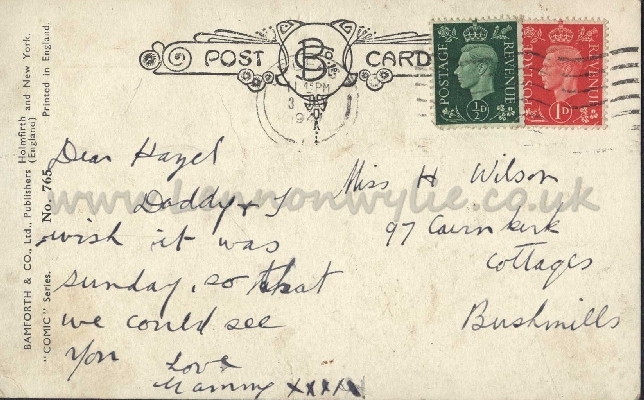 BAMFORTH & CO., Ltd., Publishers Holmfirth and New York.
(England) Printed in England.
"COMIC" Series. No. 765
POST CARD
POSTAGE REVENUE
½D
POSTAGE REVENUE
1D
PM
3
194
Dear Hazel
Daddy & I
wish it was
sunday, so that
we could see
you Love
Mammy xxxx
Miss H Wilson
97 Cairnkirk
Cottages
Bushmills
www.lennonwylie.co.uk